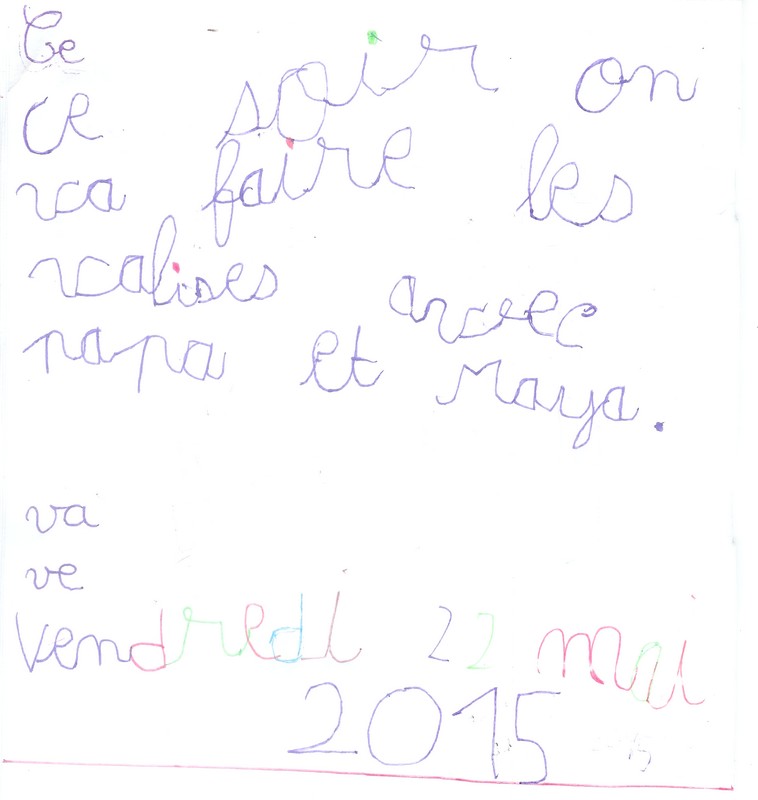 Ce
ce soir on
va faire les
valises avec
papa et Maya.
va
ve
Vendredi 22 mai
2015